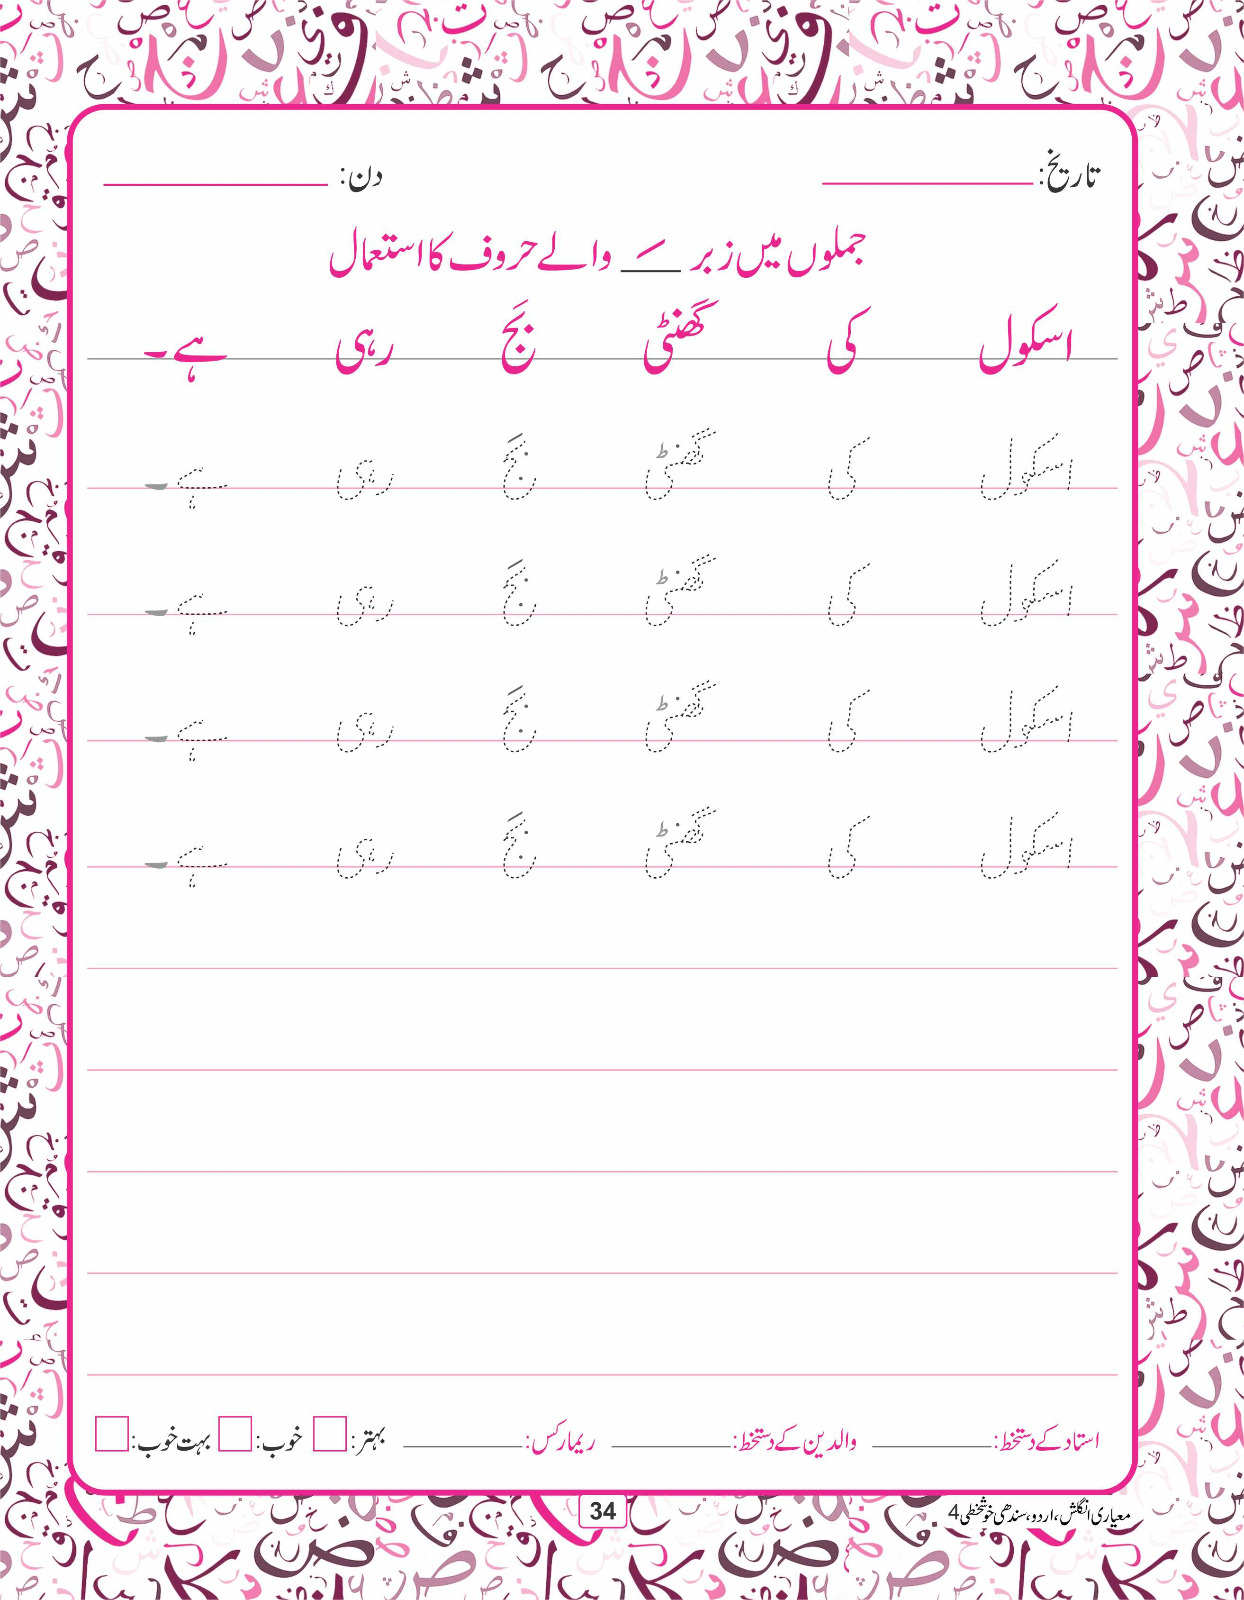 تاریخ: دن:
جملوں میں زبر ـَـ والے حروف کا استعمال
اسکول کی گھنٹی بَج رہی ہے۔
اسکول کی گھنٹی بَج رہی ہے۔
اسکول کی گھنٹی بَج رہی ہے۔
اسکول کی گھنٹی بَج رہی ہے۔
اسکول کی گھنٹی بَج رہی ہے۔
استاد کے دستخط: والدین کے دستخط: ریمارکس: بہتر: خوب: بہت خوب:
معیاری انگلش، اردو، سندھی خوشخطی 4
34